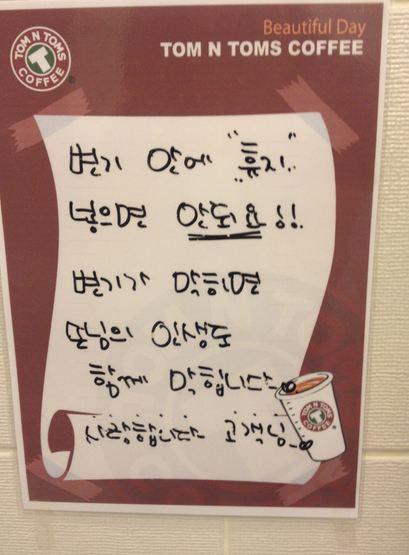 TOM N TOMS COFFEE
Beautiful Day
TOM N TOMS COFFEE
변기 안에 "휴지"
넣으면 안되요!!
변기가 막히면
손님의 인생도
함께 막힙니다
사랑합니다 고객님
TOM N TOMS COFFEE